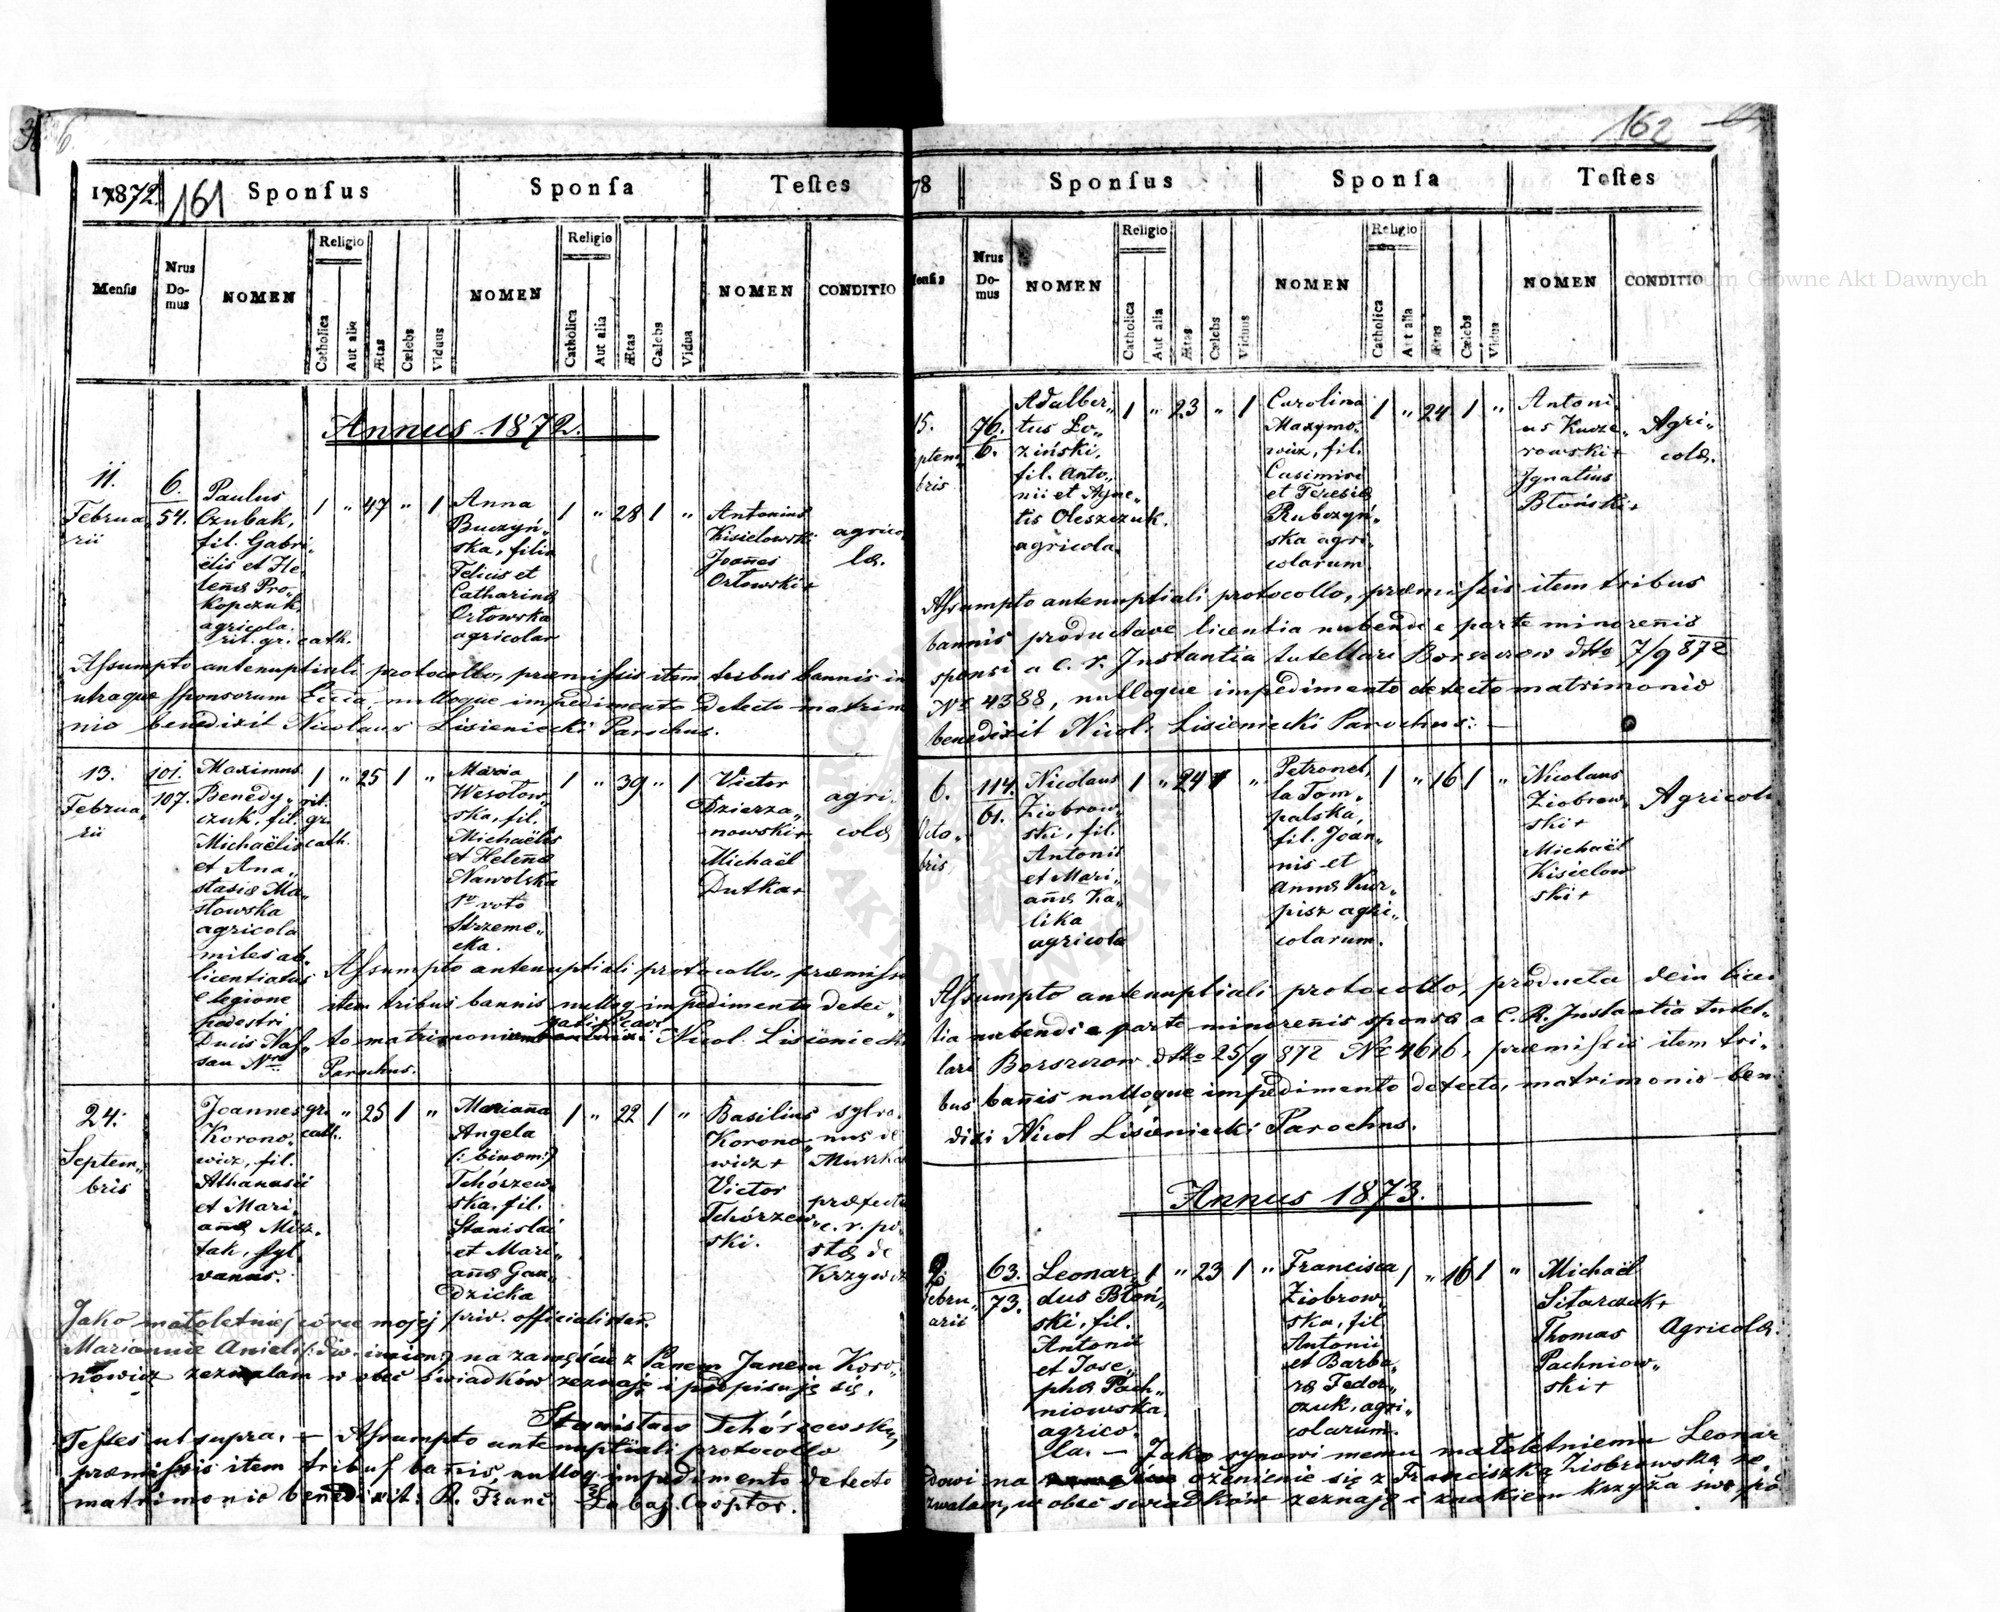 161
1872.
Sponsus
Sponsa
Testes
Mensis
Nrus Domus
NOMEN
Religio
Catholica
Aut alia
Ætas
Cælebs
Viduus
NOMEN
Religio
Catholica
Aut alia
Ætas
Cælebs
Vidua
NOMEN
CONDITIO
Annus 1872.
11.
Februa„
rii
6.
54.
Paulus
Czubak,
fil. Gabri„
ëlis et He„
lenæ Pro„
kopczuk,
agricola.
rit. gr. cath.
1 „ 47 „ 1
Anna
Buczyń„
ska, filia
Felicis et
Catharinæ
Orłowska
agricolar
1 „ 28 1 „
Antonius
Kisielowski
Joañes
Orłowski+
agrico
læ.
Assumpto antenuptiali protocollo, præmissis item tribus bannis in
utraque sponsorum Eccia, nulloque impedimento detecto matrim
nio benedixit Nicolaus Lisieniecki Parochus.
13.
Februa„
rii
101.
107.
Maximus
Benedy„ rit.
czuk, fil. gr.
Michaëlis cath.
et Ana„
stasiæ Ma„
słowska
agricola
miles ab„
licentiatus
e legione
pedestri
Ducis Nas„
sau Nro
1 „ 25 1 „
Maria
Wesołow„
ska, fil.
Michaëlis
et Helenæ
Nawolska
1o voto
Strzeme„
cka.
1 „ 39 „ 1
Victor
Dzierza„
nowski+
Michaël
Dutka+
agri„
colæ
Assumpto antenuptiali protocollo, præmissis
item tribus bannis nulloq impedimento detec„
to matrimonium Nicol. Lisieniecki
Parochus.
24.
Septem„
bris
Joannes gr.
Korono„ cath.
wicz, fil.
Athanasii
et Mari„
anæ
tak, syl
vanus.
„ 25 1 „
Mariañna
Angela
(: binom:)
Tchórzew
ska, fil.
Stanislai
et Mari„
anæ Gau„
dzicka
priv. officialistar.
1 „ 22 1 „
Basilius
Korono„
wicz+
Victor
Tchórzew
ski.
sylva„
nus de
præfect
c. r. po„
stæ de
Jako małoletniej córce mojej
Mariannie Anieli (: dw. imion:) na zamęście z Panem Janem Koro„
nowicz zezwalam w obec świadków zeznaję i podpisuję się.
Stanisław Tchórzewski
Testes ut supra. — Assumpto antenuptiali protocollo
præmissis item tribus bañis, nulloq impedimento detecto
matrimonio benedixit: R. Franc Cooptor.
162
78
Sponsus
Sponsa
Testes
Mensis
Nrus Domus
NOMEN
Religio
Catholica
Aut alia
Ætas
Cælebs
Viduus
NOMEN
Religio
Catholica
Aut alia
Ætas
Cælebs
Vidua
NOMEN
CONDITIO
15.
ptem„
bris
76.
6.
Adalber„
tus Ło„
ziński,
fil. Anto„
nii et Agne„
tis Oleszczuk.
agricola.
1 „ 23 „ 1
Carolina
Maxymo„
wicz, fil.
Casimiri
et Teresiæ
Rubczyń„
ska agri„
colarum
1 „ 24 1 „
Antoni„
us Kucze„
rowski+
Ignatius
Błoński+
Agri„
colæ.
Assumpto antenuptiali protocollo, præmissis item tribus
bannis productave licentia nubendi e parte minorenis
sponsi a C. r. Instantia tutellari Borszczow dtto 7/9 872
No 4388, nulloque impedimento detecto matrimonio
benedixit Nicol. Lisieniecki Parochus. —
6.
Octo„
bris
114.
61.
Nicolaus
Ziobrow„
ski, fil.
Antonii
et Mari„
añæ Ka„
lika
agricola
1 „ 24 1 „
Petronel„
la Tom„
palska,
fil. Joan„
nis et
Annæ Kur„
pisz agri„
colarum.
1 „ 16 1 „
Nicolaus
Ziobrow„
ski+
Michaël
Kisielow
ski+
Agricolæ
Assumpto antenuptiali protocollo, producta dein licen
tia nubendi e parte minorenis sponsæ a C. R. Instantia tutel„
lari Borszczow dtto 25/9 872 No 4616, præmissis item tri„
bus bañis nulloque impedimento detecto, matrimonio ben
dixi Nicol Lisieniecki Parochus.
Annus 1873.
9.
Febru„
arii
63.
73.
Leonar„
dus Błoń„
ski, fil.
Antonii
et Jose„
phæ Pach„
niowska
agrico„
la. —
1 „ 23 1 „
Francisca
Ziobrow„
ska, fil
Antonii
et Barba„
ræ Fedor„
czuk, agri„
colarum.
1 „ 16 1 „
Michaël
Sitarczuk+
Thomas
Pachniow„
ski+
Agricolæ.
Jako synowi memu małoletniemu Leonar
dowi na ożenienie się z Franciszką Ziobrowską ze„
zwalam, w obec świadków zeznaję i znakiem krzyża św. po
Archiwum Główne Akt Dawnych